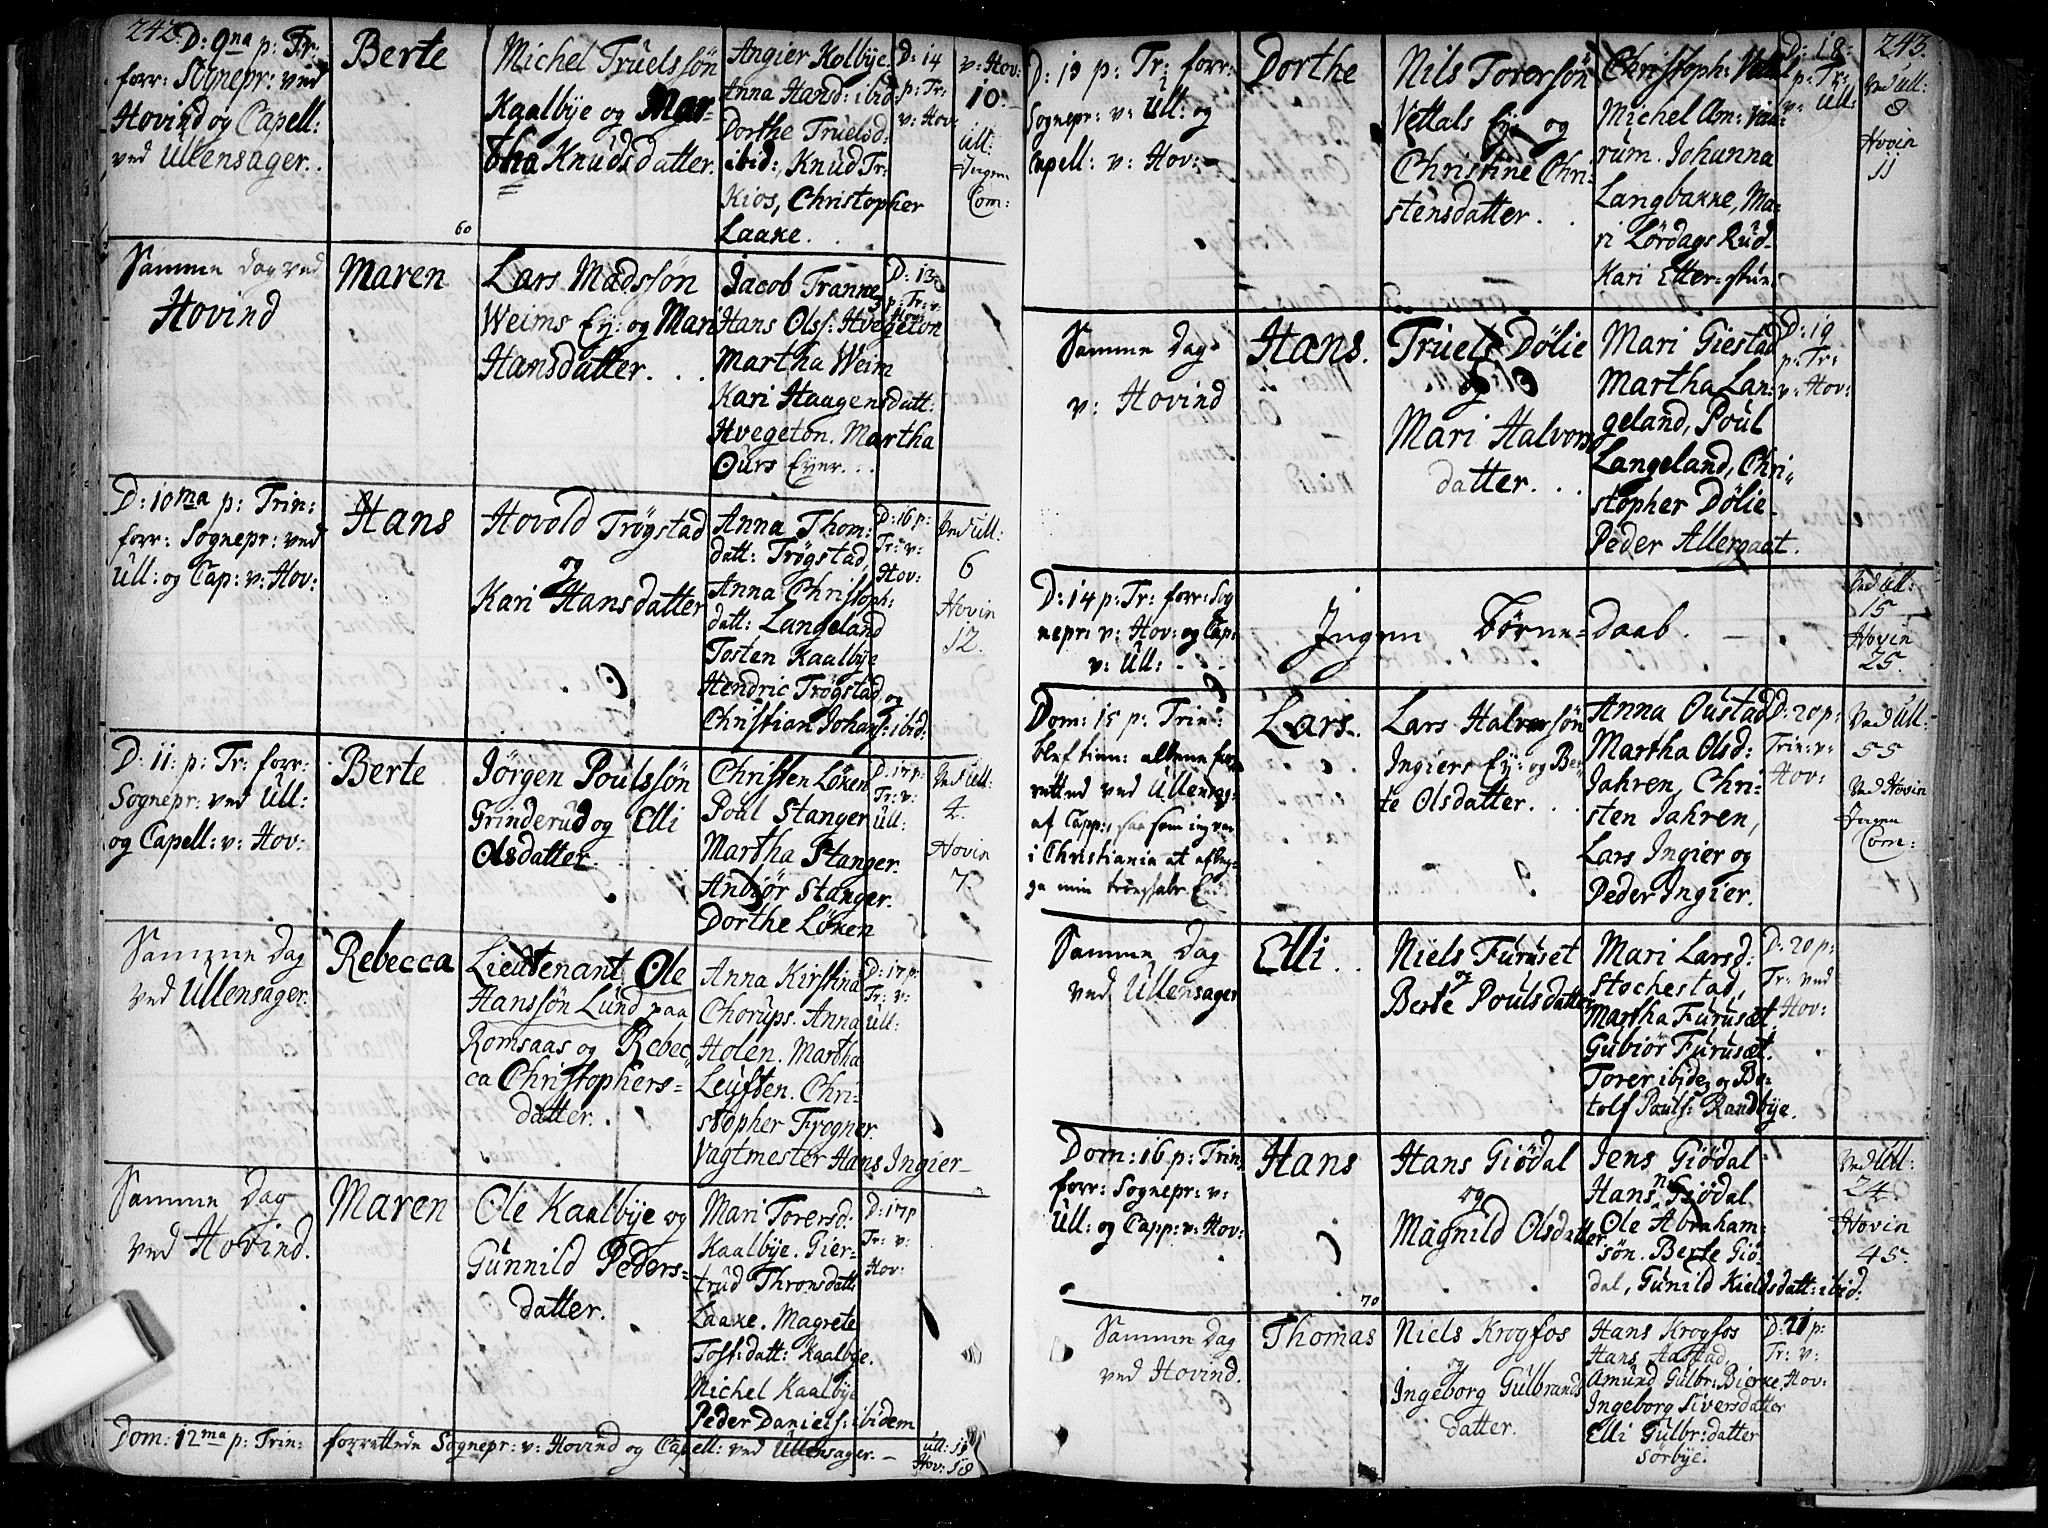 242.
D: 9na p: Tr:
forr: Sognepr: ved
Hovind og Capell:
ved Ullensager.
Berte
60
Michel Truelssön
Kaalbÿe og Mar-
tha Knudsdatter.
Angier Kolbÿe
Anna Hand: ibid
Dorthe Truelsd:
ibid:, Knud Tr:
Kios, Christopher
Laake.
D: 14
p: Tr:
v: Hov:
v: Hov:
10.
Ull:
Ingen
Com:
Samme Dag ved
Hovind
Maren
Lars Madssön
Weims Eÿ: og Mari
Hansdatter. . .
Jacob Tranne
Hans Olss: Hvegeton
Martha Weim
Kari Haagensdatt:
Hvegeton. Martha
Ours Eÿer. . .
D: 13
p: Tr: v:
Hov:
D: 10ma p: Trin:
forr: Sognepr: ved
Ull: og Cap: v: Hov:
Hans
Hovold Trögstad
og
Kari Hansdatter
Anna Thom:
datt: Trögstad
Anna Christoph:
datt: Langeland
Tosten Kaalbÿe
Hendric Trögstad og
Christian Johans: ibid.
D: 16 p:
Tr: v:
Hov:
Ved Ull:
6
Hovin
12.
D: 11: p: Tr: forr:
Sognepr: ved Ull:
og Capell: v: Hov:
Berte
Jörgen Poulssön
Grinderud og Elli
Olsdatter
Christen Löken
Poul Stanger
Martha Stanger.
Anbiör Stanger.
Dorthe Löken
D: 17 p:
Tr: v:
Ull:
Ved Ull:
4.
Hovin
7.
Samme Dag
ved Ullensager.
Rebecca
Lieutenant Ole
Hanssön Lund paa
Romsaas og Rebec-
ca Christophers-
datter.
Anna Kirstina
Chorups. Anna
Holen. Martha
Leuften. Chri-
stopher Frogner.
Vagtmester Hans Ingier
D: 17 p:
Tr: v:
Ull:
Samme Dag
ved Hovind.
Maren
Ole Kaalbÿe og
Gunnild Peders-
datter.
Mari Torersd:
Kaalbÿe. Gier-
trud Thronsdatt:
Laake. Magrete
Tost: datt: Kaalbÿe.
Michel Kaalbÿe
Peder Daniels: ibidem
D: 17 p
Tr: v:
Hov:
Dom: 12ma p: Trin: forrettede Sognepr: v: Hovind og Capell: ved Ullensager.
Hov: 18
243.
D: 13 p: Tr: forr:
Sognepr: v: Ull: og
Capell: v: Hov:
Dorthe
Nils Torersön
Vettals Eÿe og
Christine Chri-
stensdatter.
Christoph:
Michel Am:
rum. Johanna
Langbakke, Ma-
ri Lördags Rud
Kari Etter-stun
D: 18:
p: Tr:
v: Ull:
Ved Ull:
8
Hovin
11
Samme Dag
v: Hovind
Hans.
Truels Dölie
og
Mari Halvors
datter. . .
Mari Giestad
Martha Lan-
geland, Poul
Langeland, Chri-
stopher Dölie
Peder Allergaat.
D: 19
p: Tr:
v: Hov:
D: 14 p: Tr: forr: Sog
nepr: v: Hov: og Cap:
v: Ull: - . -
Ingen Börne-Daab.
Ved Ull:
15
Hovin
25
Dom: 15 p: Trin:
blef tien: allene for
retted ved Ullensag:
af Capp:, saa som jeg var
i Christiania at aflæg-
ge min troeskabs Eed
Lars.
Lars Halvorsön
Ingiers Eÿ: og Ber
te Olsdatter. . .
Anna Oustad
Martha Olsd:
Jahren, Chri-
sten Jahren,
Lars Ingier og
Peder Ingier.
D: 20 p:
Trin: v:
Hov:
Ved Ull:
55
Ved Hovin
Ingen
Com:
Samme Dag
ved Ullensager
Elli
Niels Furuset
og
Berte Poulsdatter
Mari Larsd:
Stochestad,
Martha Furusæt.
Gubiör Furusæt.
Torer ibidem og Bo-
tolf Pouls: Randbÿe.
D: 20 p:
Tr: ved
Hov:
Dom: 16 p: Trin:
forr: Sognepr: v:
Ull: og Capp: v: Hov:
Hans
70
Hans Giödal
og
Magnild Olsdatter
Jens Giödal
Hans Gjödal
Ole Abraham-
sön. Berte Giö-
dal, Gunild Kieldsdatt: ibid:
Ved Ull:
24.
Hovin
45.
Samme Dag
ved Hovind.
Thomas
Niels Krogfos
og
Ingeborg Gulbrands
datter.
Hans Krogfos
Hans Aastad
Amund Gulbr: Bierke
Ingeborg Siversdatter
Elli Gulbr: datter
Sörbÿe.
D: 21 p:
Tr: v:
Hov: